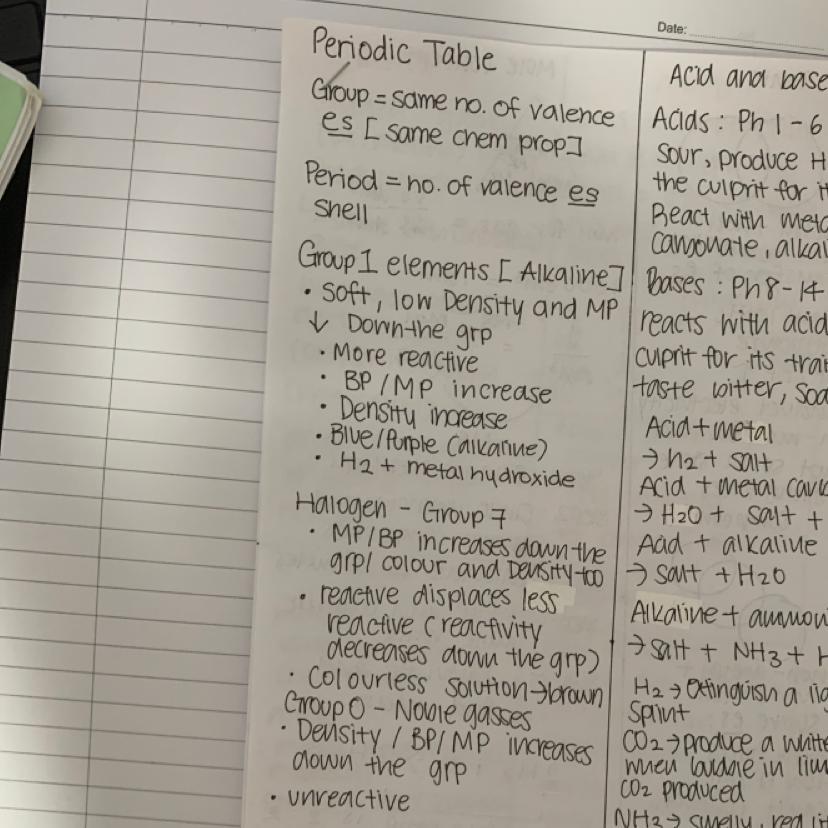 Date:
Periodic Table
Group = same no. of valence
es [ same chem prop]
Period = no. of valence es
shell
Group 1 elements [ Alkaline]
• Soft, low Density and MP
↓ Down the grp
• More reactive
• BP / MP increase
• Density increase
• Blue/Purple (alkaline)
• H2 + metal hydroxide
Halogen - Group 7
• MP/BP increases down the
grp/ colour and Density too
• reactive displaces less
reactive ( reactivity
decreases down the grp)
• Colourless solution → brown
Group 0 - Noble gasses
• Density / BP/MP increases
down the grp
• unreactive
Acid and base
Acids : Ph 1 - 6
Sour, produce H
the culprit for it
React with meta
, alkal
Bases : Ph 8 - 14
reacts with acid
culprit for its trai
taste bitter, Soa
Acid + metal
→ h2 + salt
Acid + metal carb
→ H2O + salt +
Acid + alkaline
→ salt + H2O
Alkaline + ammon
→ salt + NH3 + H
H2 → Extinguish a lig
Splint
CO2 → produce a white
when bubble in lim
CO2 produced
NH3 → smelly, red lit